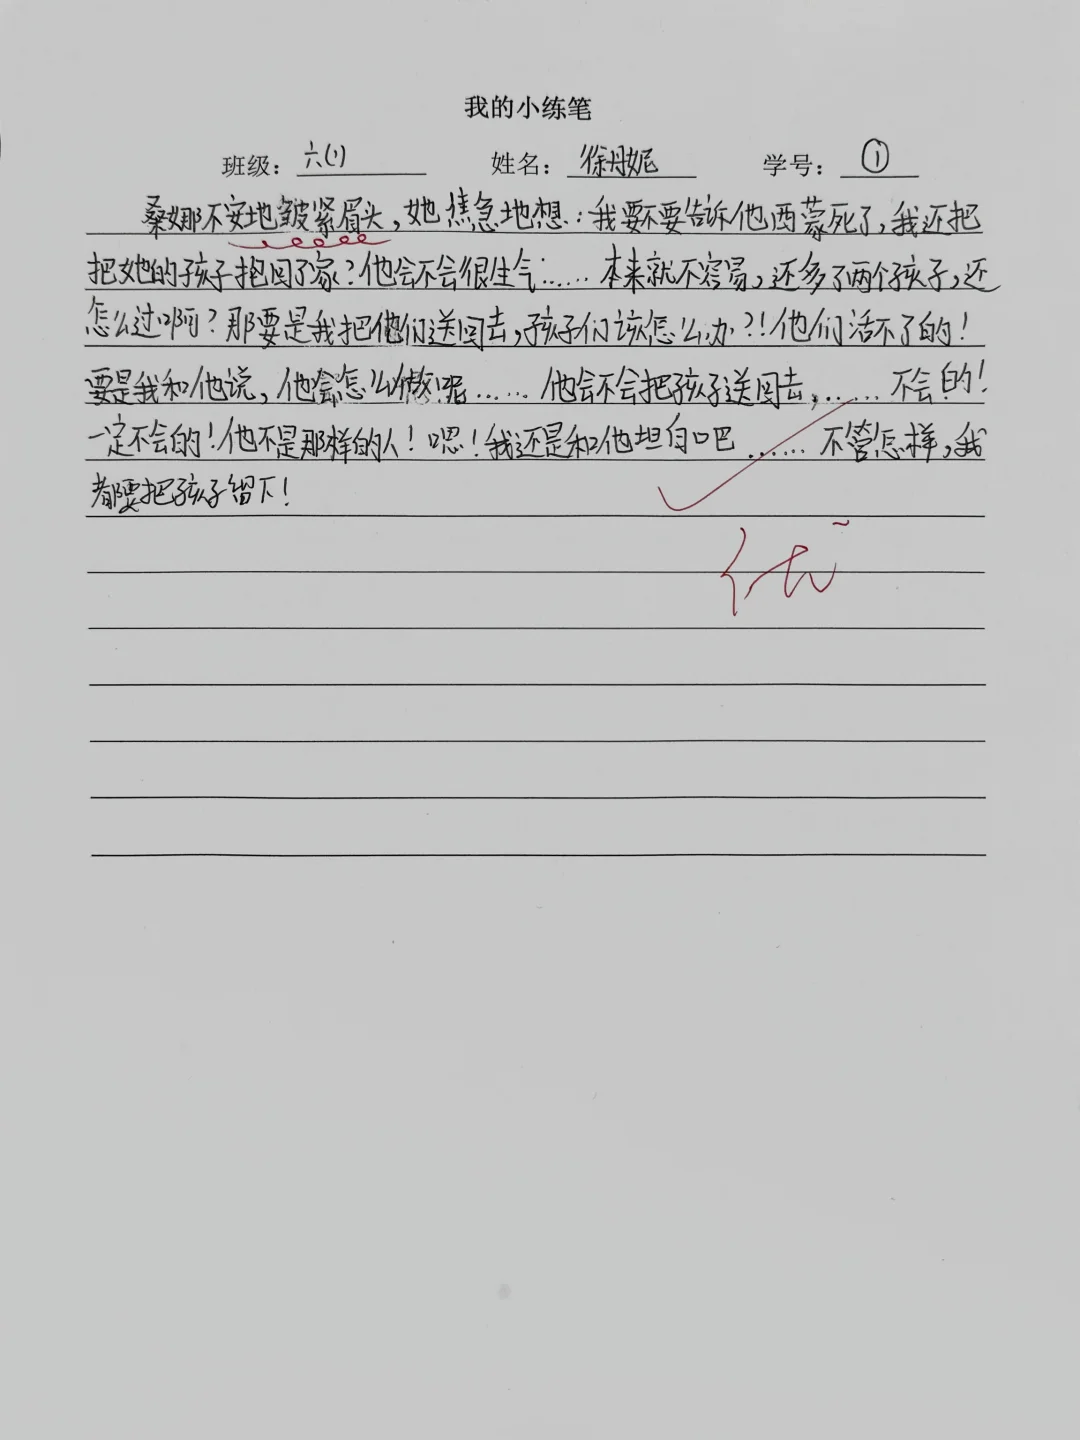 我的小练笔
班级：六(1) 姓名：徐丹妮 学号：①
桑娜不安地皱紧眉头，她焦急地想：我要不要告诉他西蒙死了，我还把
把她的孩子抱回了家？他会不会很生气……本来就不容易，还多了两个孩子，还
怎么过啊？那要是我把他们送回去，孩子们该怎么办？！他们活不了的！
要是我和他说，他会怎么做呢……他会不会把孩子送回去，……不会的！
一定不会的！他不是那样的人！嗯！我还是和他坦白吧……不管怎样，我
都要把孩子留下！
优